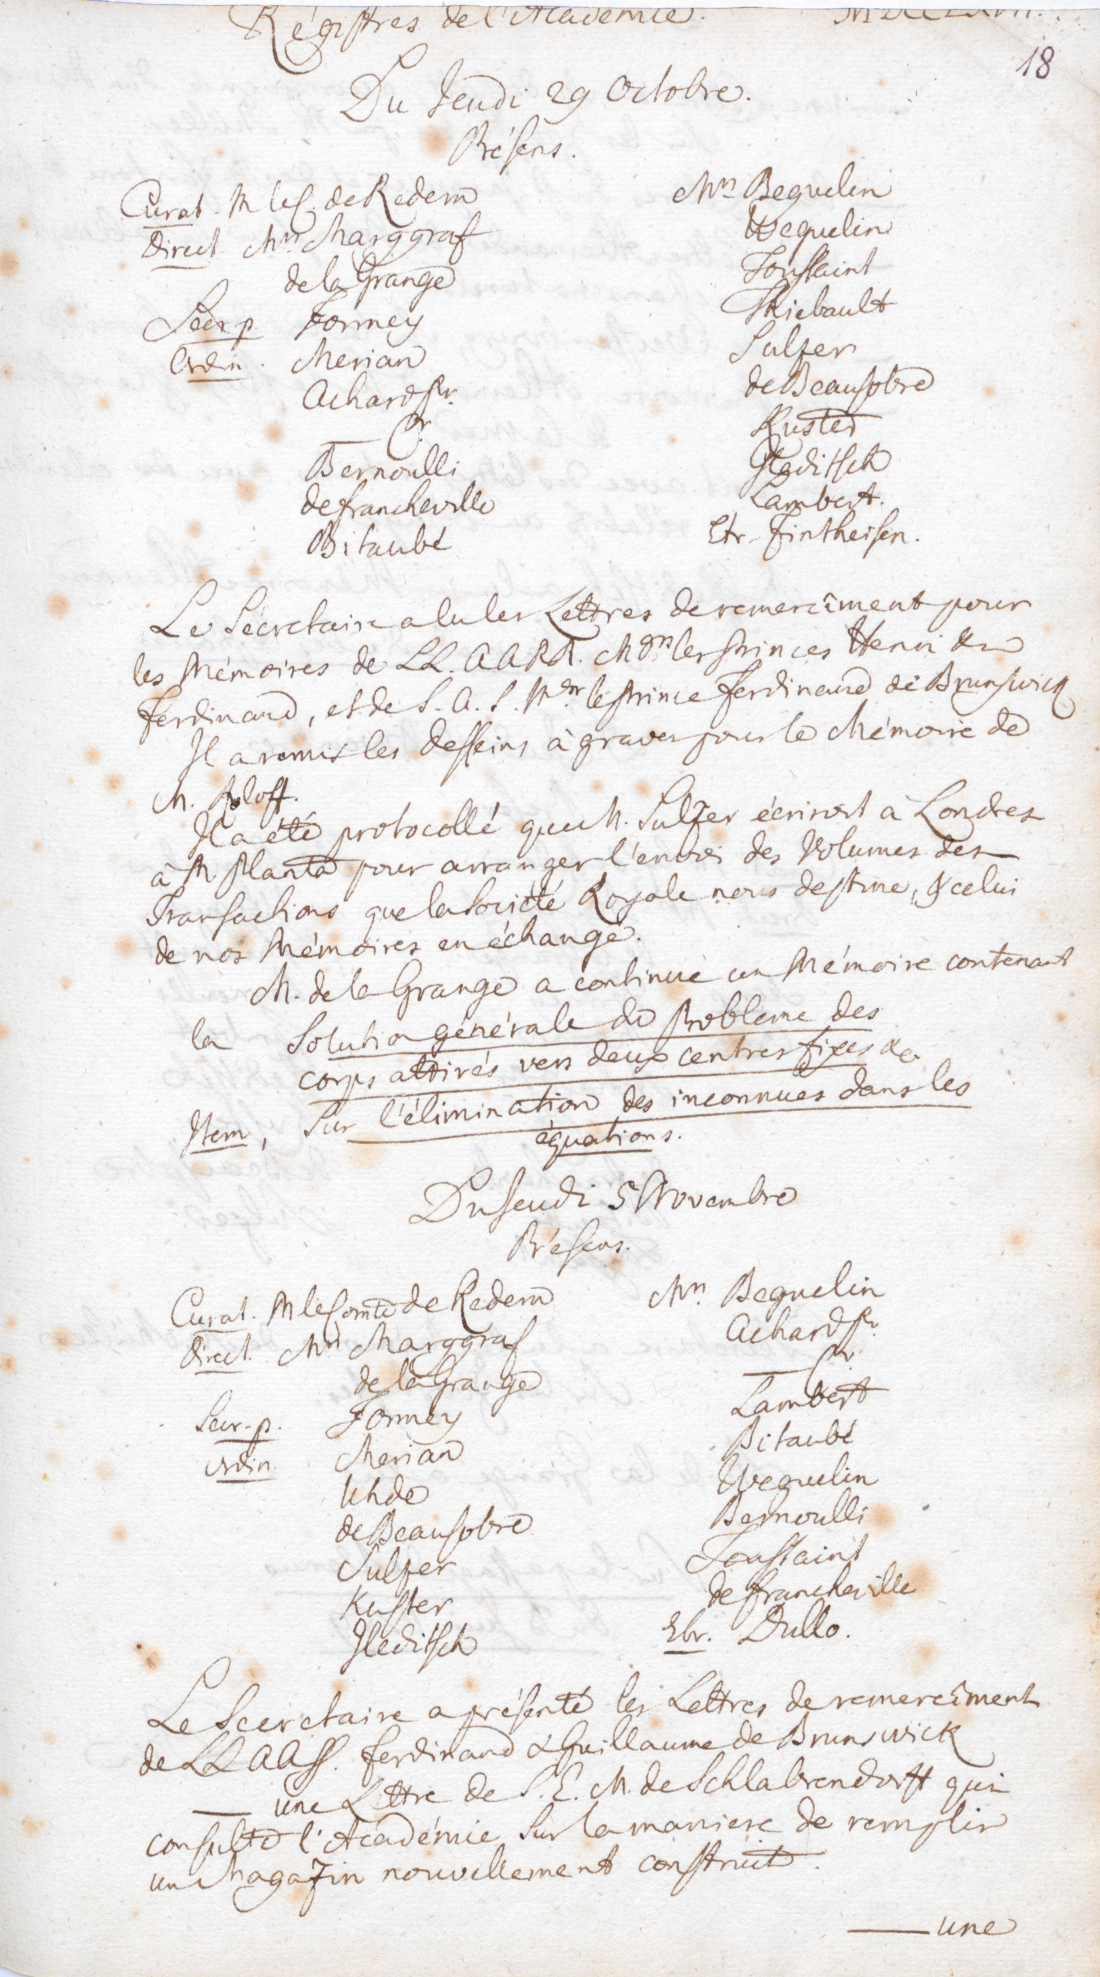 Régistres de l'Académie. MDCCLXVII.
18
Du Jeudi 29 Octobre.
Présens.
Curat. M le C. de Redern
Direct. Mrs Marggraf
de la Grange
Secr. p. Formey
Ordin. Merian
Achard Sr.
— Jr.
Bernoulli
de Francheville
Bitaubé
Mrs Beguelin
Weguelin
Toussaint
Thiebault
Sulzer
de Beausobre
Kuster
Gleditsch
Lambert.
Etr. Fintheisen.
Le Sécrétaire a lu les Lettres de remercîment pour
les Mémoires de LL. AA RR. les Princes Henri &
Ferdinand, et de S. A. S. Mgr le Prince Ferdinand de Brunswick
Il a remis les desseins à graver pour le Mémoire de
M. Roloff.
Il a été protocollé que M. Sulzer écriroit à Londres
à M Planta pour arranger l'envoi des Volumes des
Transactions que la Société Royale nous destine, & celui
de nos Mémoires en échange.
M. de la Grange a continué un Mémoire contenant
la Solution générale du Probleme des
corps attirés vers deux centres fixes &c.
Item, Sur l'élimination des inconnues dans les
équations.
Du Jeudi 5 Novembre
Présens.
Curat. M le Comte de Redern
Direct. Mrs Marggraf
de la Grange
Secr. p. Formey
Ordin. Merian
Uhde
de Beausobre
Sulzer
Kuster
Gleditsch
Mrs. Beguelin
Achard Sr.
— Jr.
Lambert
Bitaubé
Weguelin
Bernoulli
Toussaint
de Francheville
Etr. Dullo.
Le Sécrétaire a présenté les Lettres de remercîment
de LL AA SS. Ferdinand & Guillaume de Brunswick
— une Lettre de S. E. M. de Schlabrendorff qui
consulte l'Académie sur la maniere de remplir
un Magazin nouvellement construit.
— une